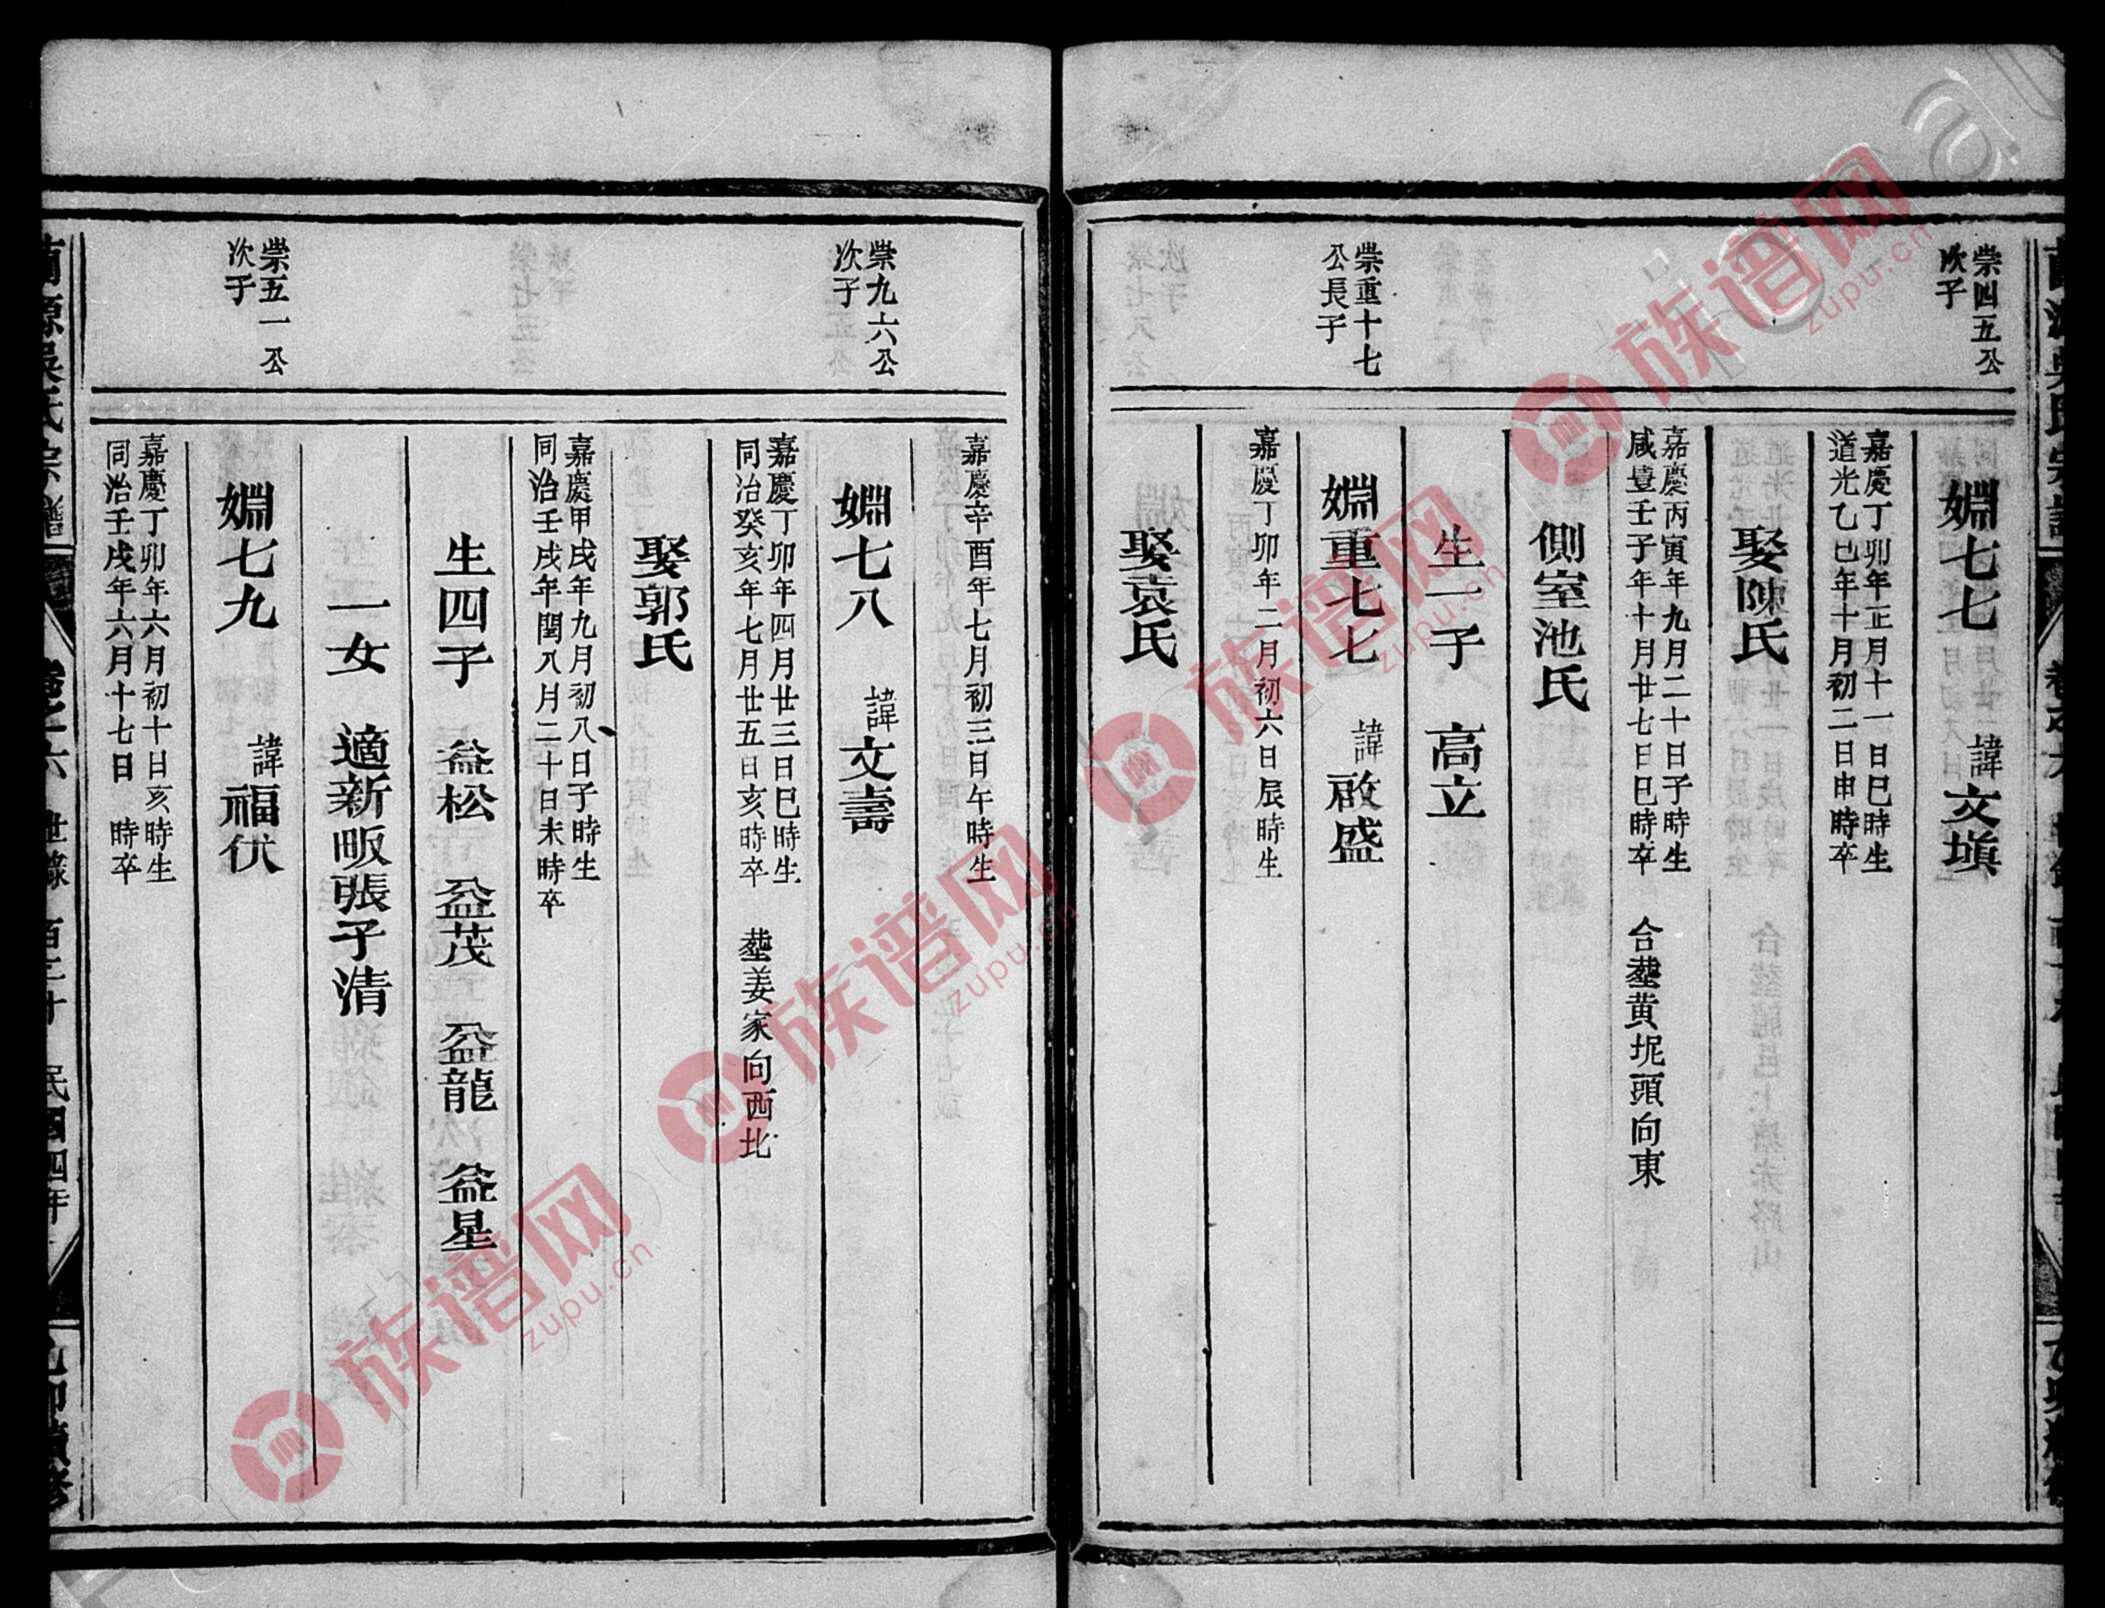 崇四五公
次子
嫻七七 諱文塡
嘉慶丁卯年正月十一日巳時生
道光乙巳年十月初二日申時卒
娶陳氏
嘉慶丙寅年九月二十日子時生
咸豐壬子年十月廿七日巳時卒 合塟黄坭頭向東
側室池氏
生一子 高立
崇重十七
公長子
嫻重七七 諱啟盛
嘉慶丁卯年二月初六日辰時生
娶袁氏
嘉慶辛酉年七月初三日午時生
崇九六公
次子
嫻七八 諱文壽
嘉慶丁卯年四月廿三日巳時生
同治癸亥年七月廿五日亥時卒 塟姜家向西北
娶郭氏
嘉慶甲戌年九月初八日子時生
同治壬戌年閏八月二十日未時卒
生四子 益松 益茂 益龍 益星
一女 適新畈張子清
崇五一公
次子
嫻七九 諱福伏
嘉慶丁卯年六月初十日亥時生
同治壬戌年六月十七日 時卒
源吳氏宗譜
卷之六 世錄 民國四年
族谱网
zupu.cn
族谱网
zupu.cn
族谱网
zupu.cn